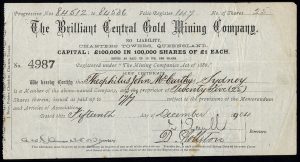 Progressive Nos 84512 to 84536 Folio Register 1447 No. of Shares 25
The Brilliant Central Gold Mining Company.
NO LIABILITY,
CHARTERS TOWERS, QUEENSLAND.
CAPITAL: £100,000 IN 100,000 SHARES OF £1 EACH.
Registered under "The Mining Companies Act of 1886."
No. 4987
We hereby Certify that Theophilus John McCarthy, Sydney
is a Member of the above-named Company, and the proprietor of Twenty five (25)
Shares, issued as paid up to subject to the provisions of the Memorandum
and Articles of Association.
Dated this Fifteenth day of December